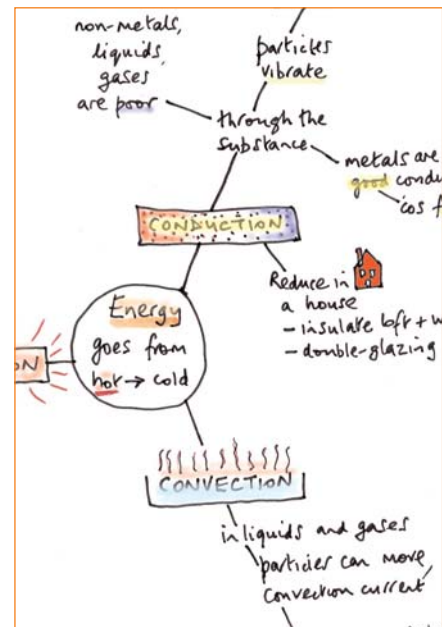 non-metals,
liquids,
gases
are poor
particles
vibrate
through the
substance
metals are
good condu
cos f
CONDUCTION
Reduce in
a house
- insulate loft + w
- double-glazing
Energy
goes from
hot → cold
ON
CONVECTION
in liquids and gases
particles can move,
convection current